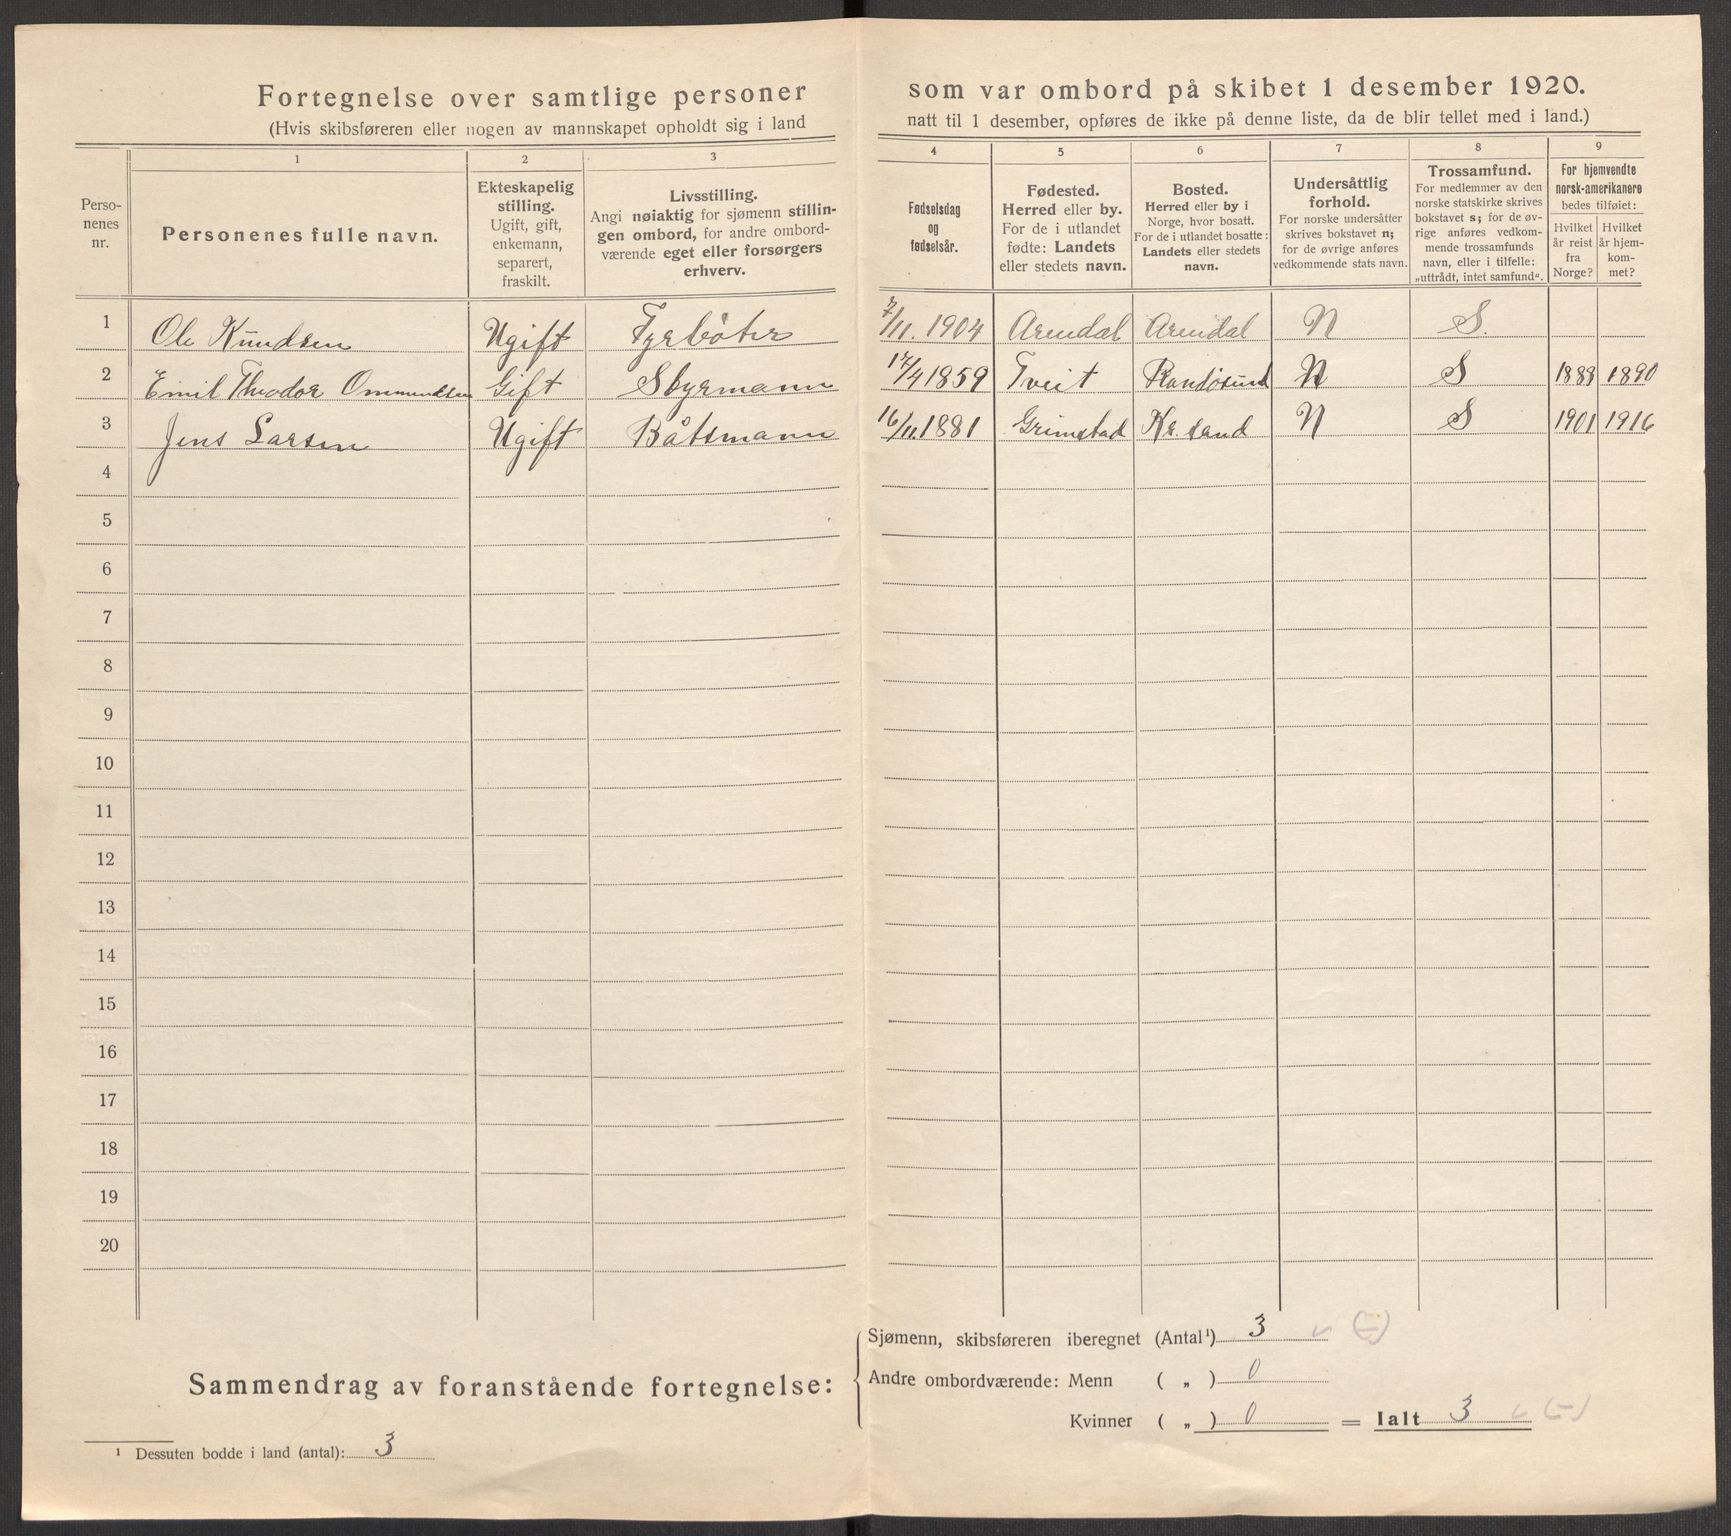 Fortegnelse over samtlige personer som var ombord på skibet 1 desember 1920.
(Hvis skibsføreren eller nogen av mannskapet opholdt sig i land natt til 1 desember, opføres de ikke på denne liste, da de blir tellet med i land.)
Perso-
nenes
nr.
1
Personenes fulle navn.
2
Ekteskapelig
stilling.
Ugift, gift,
enkemann,
separert,
fraskilt.
3
Livsstilling.
Angi nøiaktig for sjømenn stillin-
gen ombord, for andre ombord-
værende eget eller forsørgers
erhverv.
4
Fødselsdag
og
fødselsår.
5
Fødested.
Herred eller by.
For de i utlandet
fødte: Landets
eller stedets navn.
6
Bosted.
Herred eller by i
Norge, hvor bosatt.
For de i utlandet bosatte:
Landets eller stedets
navn.
7
Undersåttlig
forhold.
For norske undersåtter
skrives bokstavet n;
for de øvrige anføres
vedkommende stats navn.
8
Trossamfund.
For medlemmer av den
norske statskirke skrives
bokstavet s; for de øv-
rige anføres vedkom-
mende trossamfunds
navn, eller i tilfelle:
„uttrådt, intet samfund“.
9
For hjemvendte
norsk-amerikanere
bedes tilføiet:
Hvilket
år reist
fra
Norge?
Hvilket
år hjem-
kom-
met?
1 Ole Knudsen Ugift Fyrbøter 7/11. 1904 Arendal Arendal N S.
2 Emil Theodor Ommundsen Gift Styrmann 17/4 1859 Tveit Randøsund N S 1889 1890
3 Jens Larsen Ugift Båtsmann 16/11 1881 Grimstad Kr.sand N S 1901 1916
4
5
6
7
8
9
10
11
12
13
14
15
16
17
18
19
20
Sammendrag av foranstående fortegnelse:
Sjømenn, skibsføreren iberegnet (Antal¹) 3
Andre ombordværende: Menn ( „ ) 0
Kvinner ( „ ) 0 = Ialt 3
¹ Dessuten bodde i land (antal): 3